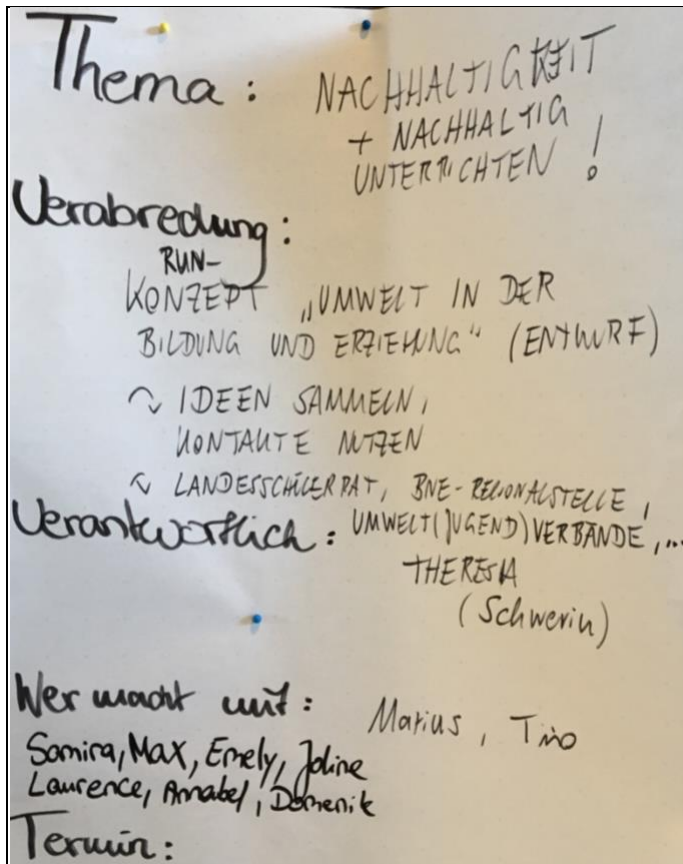 Thema: NACHHALTIGKEIT
+ NACHHALTIG
UNTERRICHTEN!
Verabredung:
RUN-
KONZEPT „UMWELT IN DER
BILDUNG UND ERZIEHUNG“ (ENTWURF)
↷ IDEEN SAMMELN,
KONTAKTE NUTZEN
↷ LANDESSCHÜLERRAT, BNE-REGIONALSTELLE,
Verantwortlich: UMWELT(JUGEND)VERBÄNDE,...
THERESIA
(Schwerin)
Wer macht mit: Marius, Tino
Samira, Max, Emely, Joline
Laurence, Annabel, Domenik
Termin: